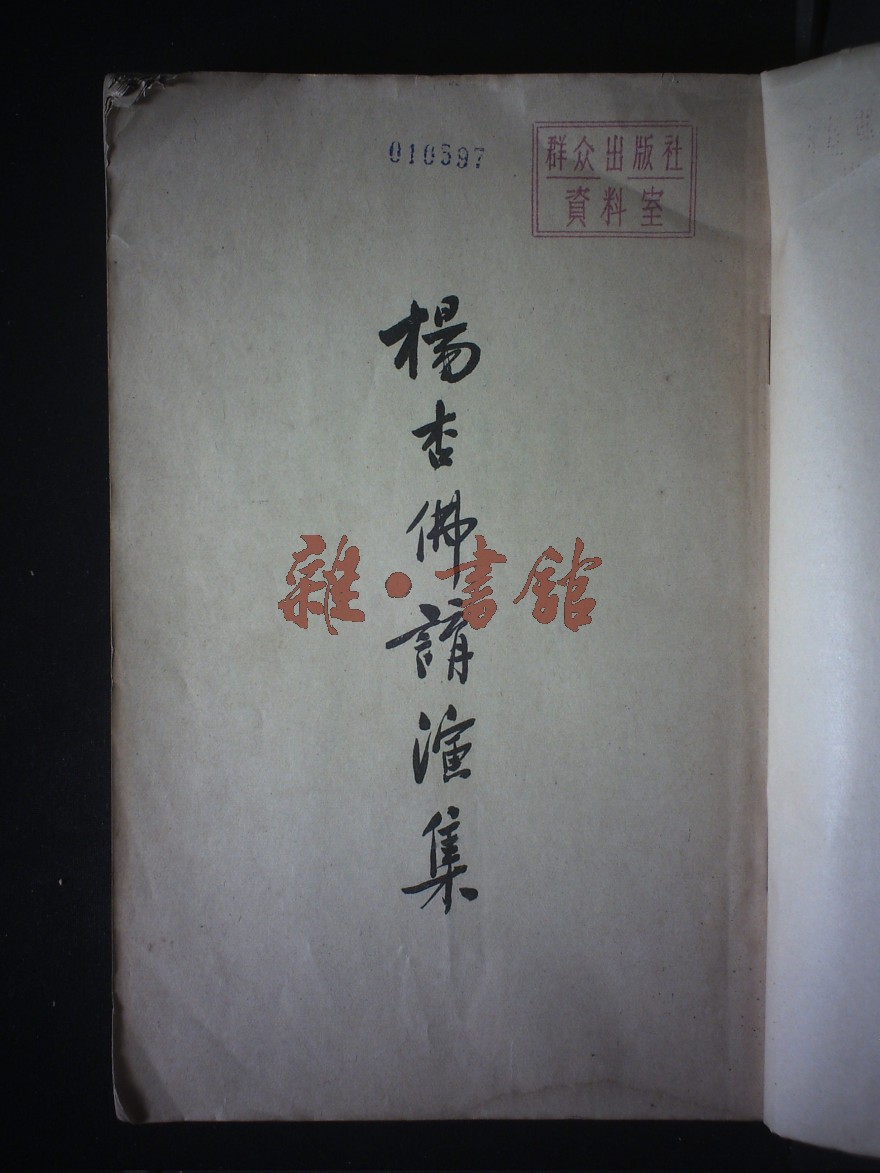 010597
群众出版社
資料室
楊杏佛講演集
雜·書館